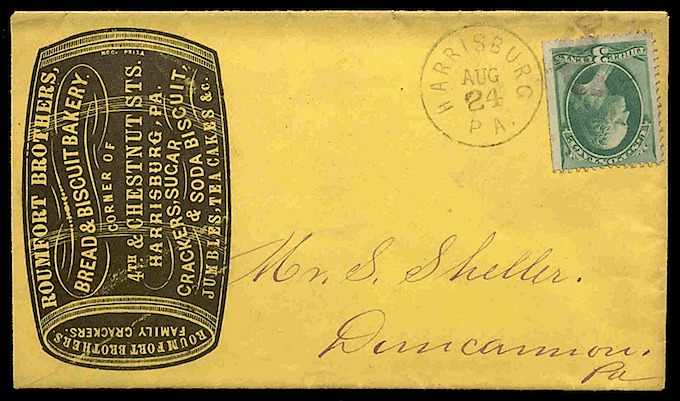 ROUMFORT BROTHERS,
BREAD & BISCUIT BAKERY.
CORNER OF
4TH & CHESTNUT STS.
HARRISBURG, PA.
CRACKERS, SUGAR
& SODA BISCUIT,
JUMBLES, TEA CAKES &c.
ROUMFORT BROTHERS
FAMILY CRACKERS.
HARRISBURG
AUG
24
PA.
Mr. S. Sheller.
Duncannon.
Pa